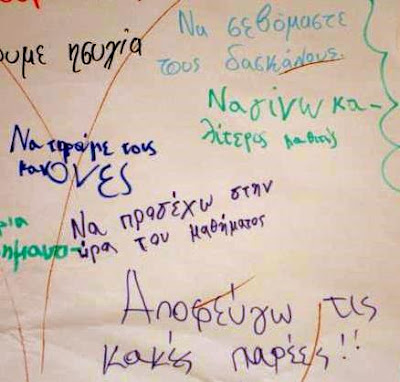 Να σεβόμαστε
τους δασκάλους.
ουμε ησυχία
Να γίνω κα-
λίτερος μαθητής
Να τηρούμε τους
κανΟΝΕς
Να προσέχω στην
ώρα του μαθήματος
Αποφεύγω τις
κακές παρέες!!